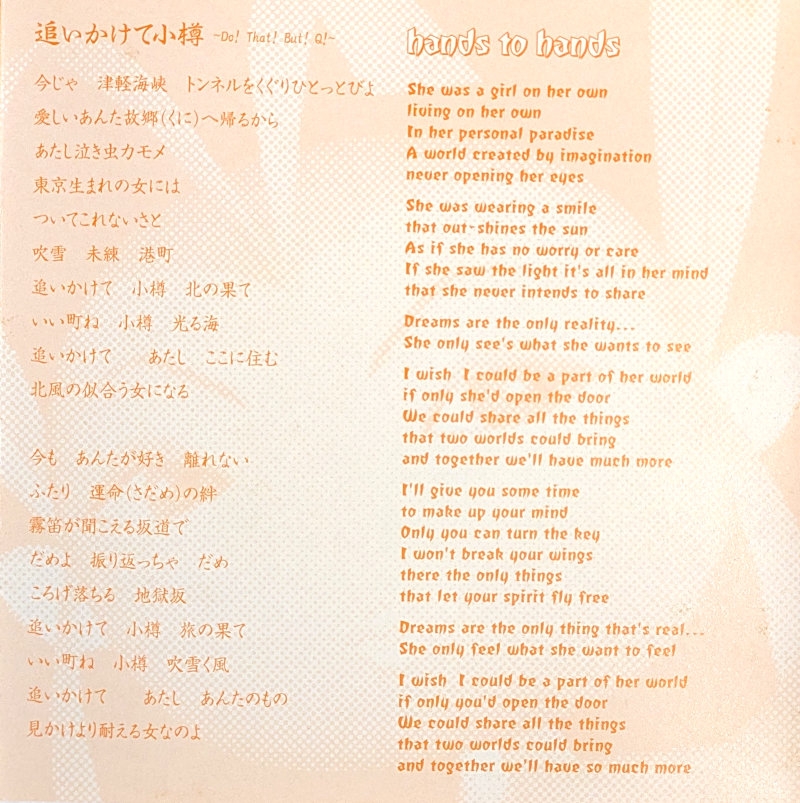 追いかけて小樽 ~Do! That! But! Q!~
今じゃ　津軽海峡　トンネルをくぐりひとっとびよ
愛しいあんた故郷(くに)へ帰るから
あたし泣き虫カモメ
東京生まれの女には
ついてこれないさと
吹雪　未練　港町
追いかけて　小樽　北の果て
いい町ね　小樽　光る海
追いかけて　　あたし　ここに住む
北風の似合う女になる
今も　あんたが好き　離れない
ふたり　運命(さだめ)の絆
霧笛が聞こえる坂道で
だめよ　振り返っちゃ　だめ
ころげ落ちる　地獄坂
追いかけて　小樽　旅の果て
いい町ね　小樽　吹雪く風
追いかけて　　あたし　あんたのもの
見かけより耐える女なのよ
hands to hands
She was a girl on her own
living on her own
In her personal paradise
A world created by imagination
never opening her eyes
She was wearing a smile
that out-shines the sun
As if she has no worry or care
If she saw the light it's all in her mind
that she never intends to share
Dreams are the only reality...
She only see's what she wants to see
I wish I could be a part of her world
if only she'd open the door
We could share all the things
that two worlds could bring
and together we'll have much more
I'll give you some time
to make up your mind
Only you can turn the key
I won't break your wings
there the only things
that let your spirit fly free
Dreams are the only thing that's real...
She only feel what she want to feel
I wish I could be a part of her world
if only you'd open the door
We could share all the things
that two worlds could bring
and together we'll have so much more